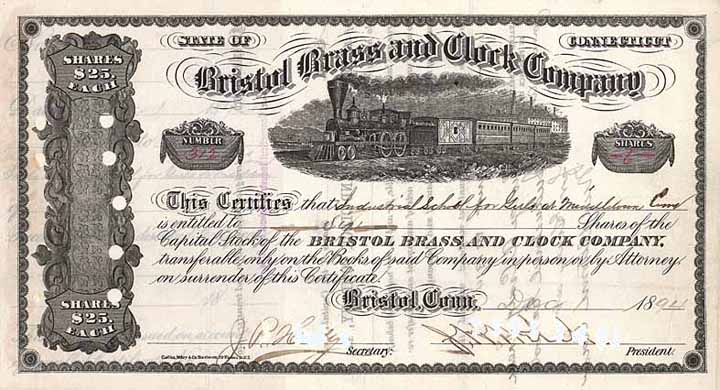 STATE OF CONNECTICUT
Bristol Brass and Clock Company
SHARES $25. EACH
NUMBER
SHARES
6
This Certifies that Industrial School for Girls at Middletown Conn
is entitled to Six Shares of the
Capital Stock of the BRISTOL BRASS AND CLOCK COMPANY,
transferable only on the Books of said Company in person or by Attorney
on surrender of this Certificate.
SHARES $25. EACH
Bristol, Conn. Dec 1 1894
J. P.
Secretary. President.